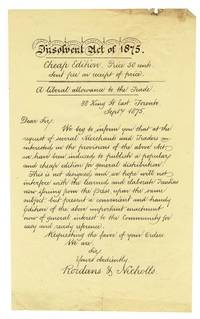 Insolvent Act of 1875.
Cheap Edition Price 50 cents
Sent free on receipt of price.
A liberal allowance to the Trade
88 King St East Toronto
Sept 4 1875.
Dear Sir,
We beg to inform you that at the
request of several Merchants and Traders
interested in the provisions of the above Act
we have been induced to publish a popular
and cheap edition for general distribution.
This is not designed and we hope will not
interfere with the learned and elaborate Treatises
now issuing from the Press, upon the same
subject but present a convenient and handy
Edition of the above important enactment
now of general interest to the Community for
easy and ready reference.
Requesting the favor of your Orders
We are
Sir
Yours obediently
Rordans & Nicholls